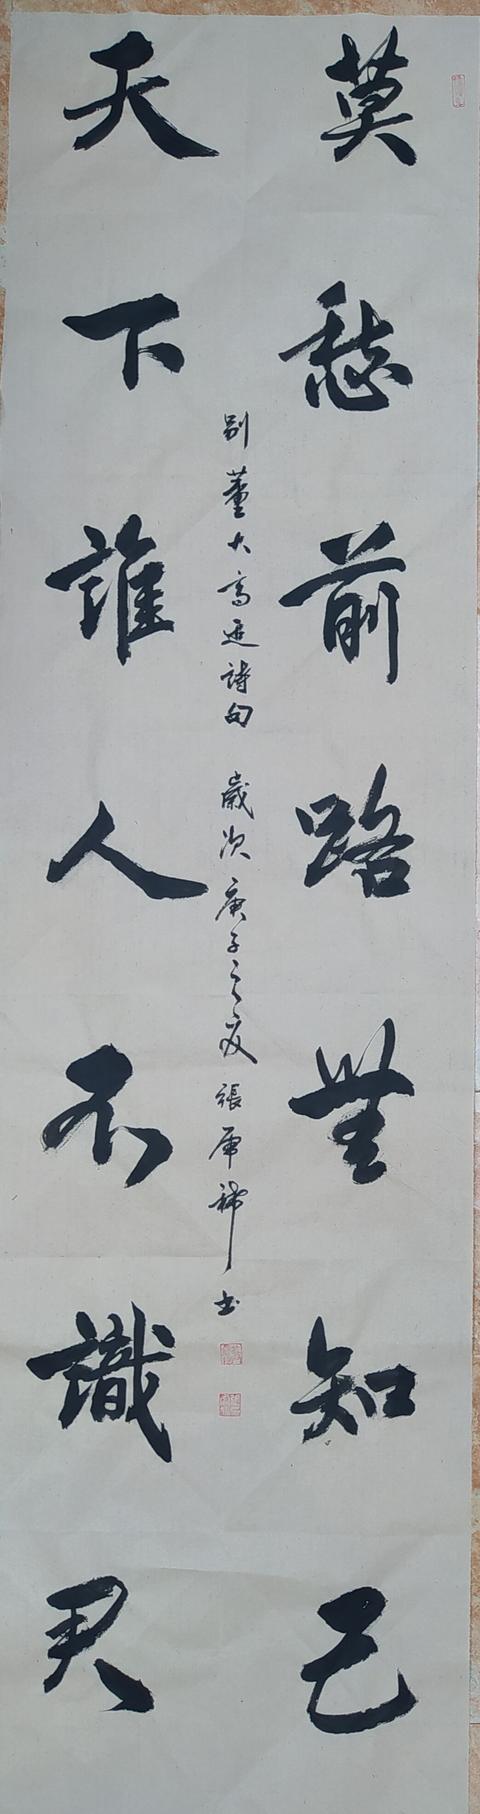 莫愁前路無知己
天下誰人不識君
別董大高適詩句 歲次庚子之夏 張
書